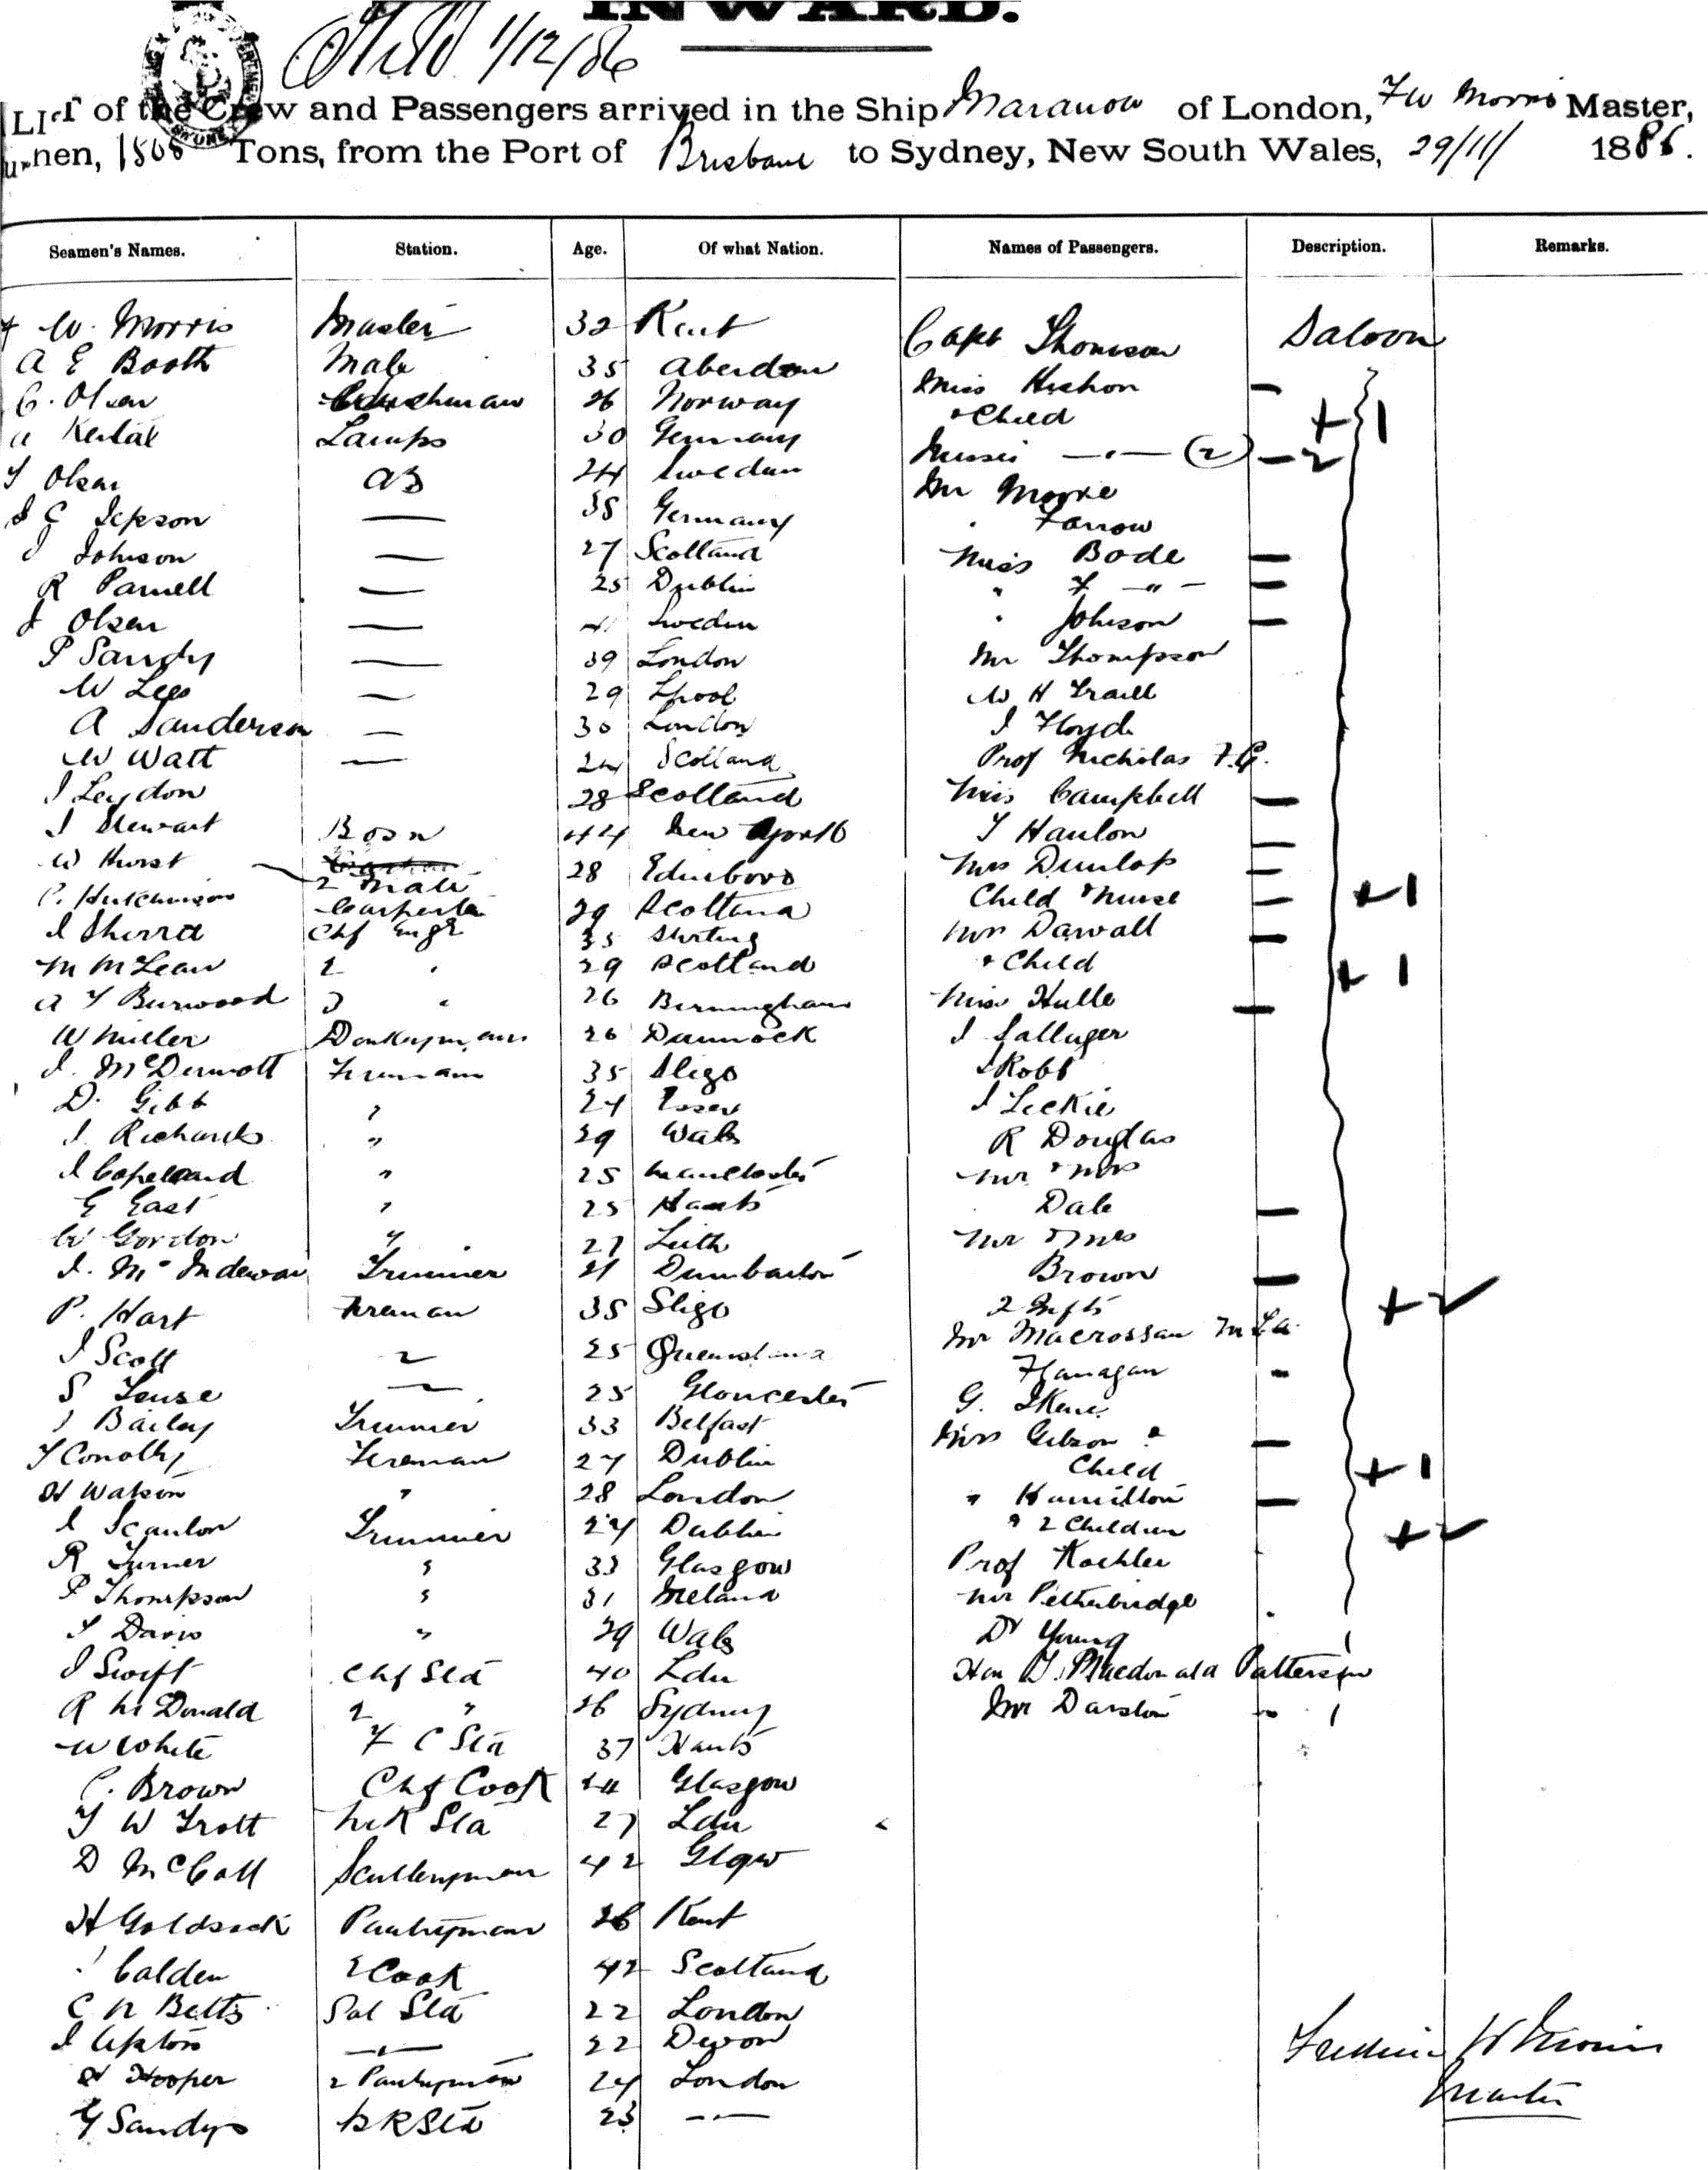 INWARD.
Held 1/12/86
LIST of the Crew and Passengers arrived in the Ship Maranoa of London, F W Morris Master,
1505 Tons, from the Port of Brisbane to Sydney, New South Wales, 29/11/ 1886.
Seamen's Names. Station. Age. Of what Nation. Names of Passengers. Description. Remarks.
F W. Morris Master 32 Kent Capt Thomson Saloon
A E Booth Mate 35 Aberdeen Miss —
C. Olsen 26 Norway & Child + 1
A Lamps 30 Germany Misses — " — (2) — 2
T Olsen AB 24 Sweden Mr Moore
J C Jepson — 38 Germany " Farrow
J Johnson — 27 Scotland Miss Bode —
R Parnell — 25 Dublin " F — " — —
J Olsen — Sweden " Johnson —
P Sandy — 39 London Mr Thompson
W Lees — 29 Lpool W H Traill
A Sanderson — 30 London J Floyd
W Watt — 24 Scotland Prof Nicholas F.G.
J Leydon 28 Scotland Miss Campbell —
J Stewart Bosn 44 New York T Hanlon —
W Hurst 2 Mate 28 Edinboro Mrs Dunlop —
C. Hutchinson Carpenter 29 Scotland Child & Nurse — + 1
J Sherra Chf Engr 35 Stirling Mrs Darvall —
M McLean 2 " 29 Scotland & Child + 1
A T Burwood 3 " 26 Birmingham Miss Hulle —
W Miller Donkeyman 26 J
J. McDermott Fireman 35 Sligo J Robb
D. Gibb " 24 Essex J Leckie
J. Richards " 29 Wales R Douglas
J Copeland " 25 Manchester Mr & Mrs
G East " 25 Hants Dale —
W Gordon " 27 Leith Mr & Mrs
J. Mc Indewar Trimmer 21 Dumbarton Brown —
P. Hart Fireman 35 Sligo 2 Infts + 2
J Scott " 25 Mr Macrossan M L A
S — 25 Gloucester Flanagan -
J Bailey Trimmer 33 Belfast G.
T Conolly Fireman 27 Dublin Mrs Gibson & —
H Watson " 28 London Child + 1
J Scanlon Trimmer 24 Dublin " Hamilton —
R Turner " 33 Glasgow & 2 Children + 2
P Thompson " 31 Ireland Prof Koehler
T Davis " 29 Wales Mr Petherbridge
J Swift Chf Std 40 Ldn Dr Young
R McDonald 2 " 26 Sydney Hon T. Macdonald Patterson
W White F C Std 37 Hants Mr Darston
C. Brown Chf Cook 24 Glasgow
T W Trott Std 27 Ldn
D McCall Sculleryman 42 Glgw
H Goldsack Pantryman 26 Kent
Calden 2 Cook 42 Scotland
C N Betts Sal Std 22 London
J Upton — " — 22 Devon
H Hooper 2 Pantryman 24 London
G Sandys B R Std 23 — " —
W Morris
Master